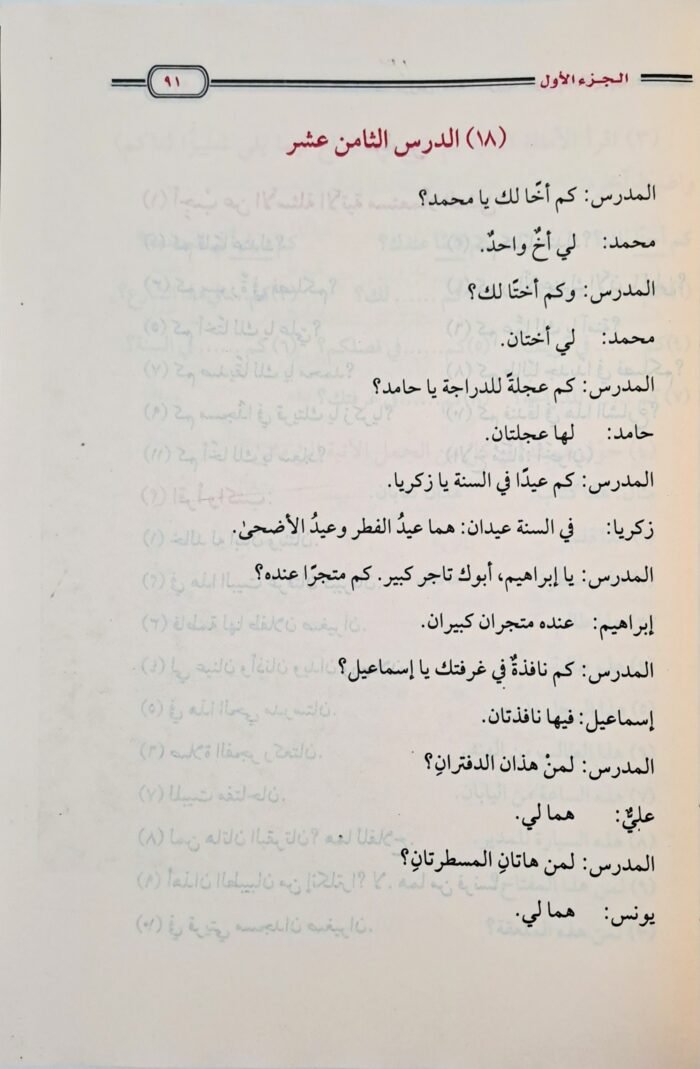 الجزء الأول
٩١
(١٨) الدرس الثامن عشر
المدرس: كم أخًا لك يا محمد؟
محمد: لي أخٌ واحدٌ.
المدرس: وكم أختًا لك؟
محمد: لي أختان.
المدرس: كم عجلةً للدراجة يا حامد؟
حامد: لها عجلتان.
المدرس: كم عيدًا في السنة يا زكريا.
زكريا: في السنة عيدان: هما عيدُ الفطر وعيدُ الأضحىٰ.
المدرس: يا إبراهيم، أبوك تاجر كبير. كم متجرًا عنده؟
إبراهيم: عنده متجران كبيران.
المدرس: كم نافذةٌ في غرفتك يا إسماعيل؟
إسماعيل: فيها نافذتان.
المدرس: لمنْ هذان الدفترانِ؟
عليٌّ: هما لي.
المدرس: لمن هاتانِ المسطرتانِ؟
يونس: هما لي.